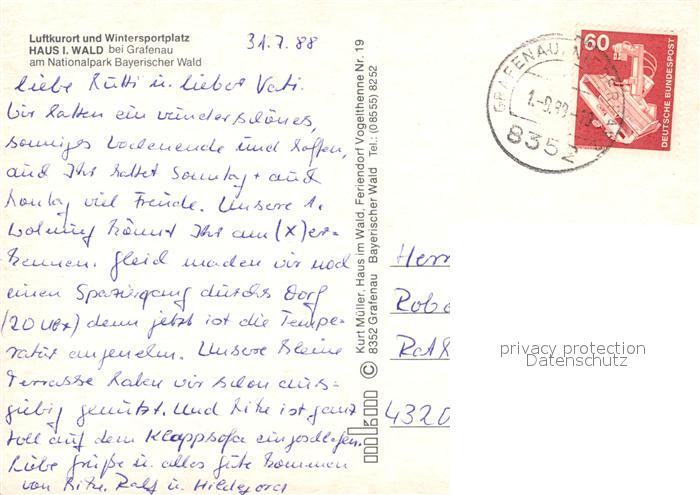 Luftkurort und Wintersportplatz
HAUS I. WALD bei Grafenau
am Nationalpark Bayerischer Wald
31.7.88
Liebe Mutti u. lieber Vati.
Wir hatten ein wunderschönes,
sonniges Wochenende und hoffen,
auch Ihr hattet Sonntag + auch
Montag viel Freude. Unsere 1.
Wohnung könnt Ihr am (X) er-
kennen. Gleich machen wir noch
einen Spaziergang durchs Dorf
(20 Uhr) denn jetzt ist die Tempe-
ratur angenehm. Unsere kleine
Terrasse haben wir schon aus-
giebig genützt. Und ist ganz
toll auf dem Klappsofa eingeschlafen.
Liebe Grüße u. alles Gute kommen
von Ralf u. Hildegard
Kurt Müller, Haus im Wald, Feriendorf Vogelthenne Nr. 19
8352 Grafenau Bayerischer Wald Tel.: (08555) 8252
©
GRAFENAU
8352
60
DEUTSCHE BUNDESPOST
Herr
Robe
4320
privacy protection
Datenschutz